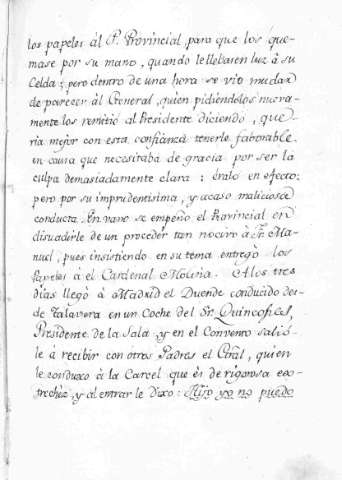 los papeles ál P. Provincial, para que los que-
mase por su mano, quando le llebasen luz á su
Celda; pero dentro de una hora se vio mudar
de parecer ál General, quien pidiendolos nueva-
mente los remitió al Presidente diciendo, que-
ria mejor con esta confianza tenerle faborable.
en causa que necesitaba de gracia por ser la
culpa demasiadamente clara; éralo en efecto;
pero por su imprudentisima, y acaso maliciosa
conducta. En vano se empeño el Provincial en
disuadirle de un proceder tan nocivo á Fr. Ma-
nuel, pues insistiendo en su tema entregó los
Papeles á el Cardenal Molina. A los tres
dias llegó á Madrid el Duende conducido des-
de Talavera en un Coche del Sr. Quincofices,
Presidente de la Sala, y en el Convento salió-
le á recibir con otros Padres el Gral, quien
le conduxo á la Carcel que és de rigorosa es-
trechéz, y al entrar le Dixo: Hijo yo no puedo